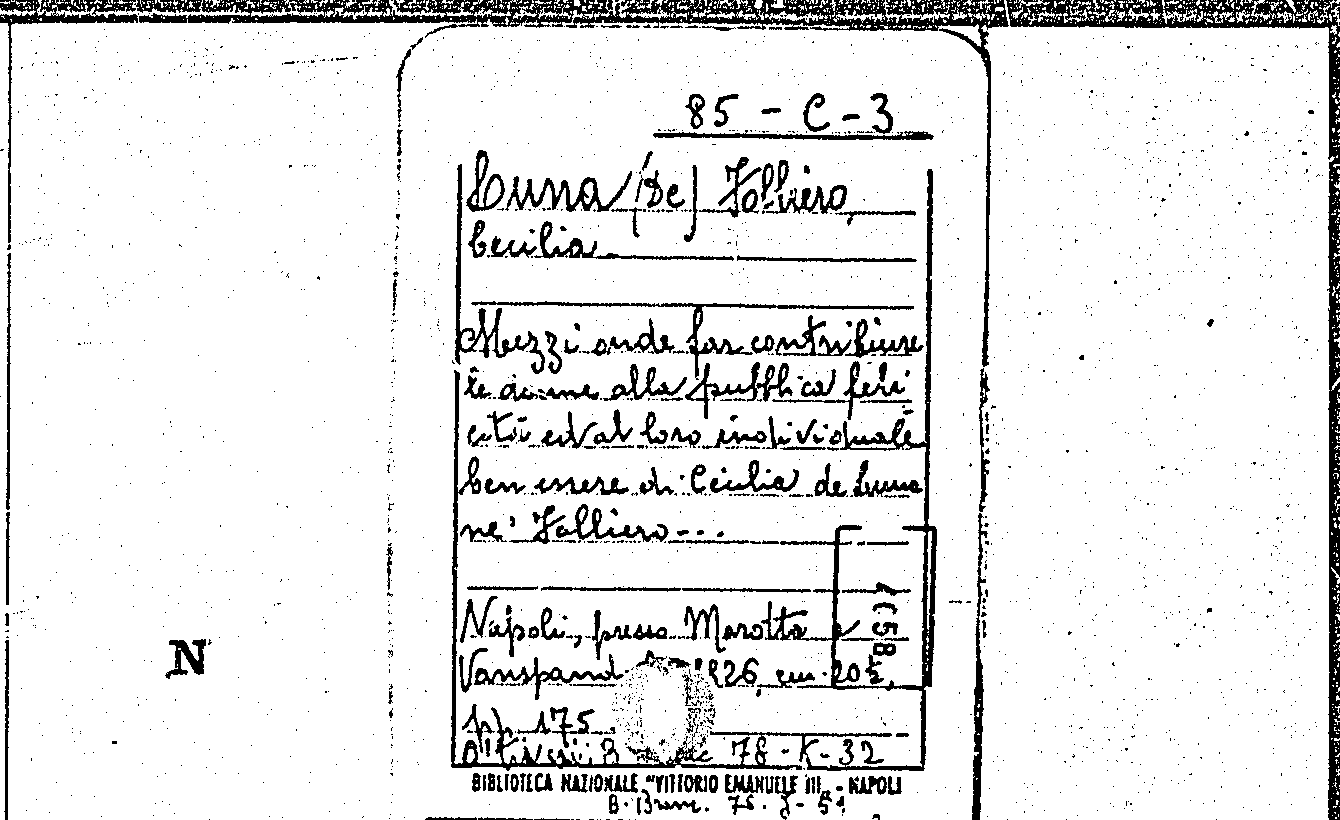 85 - C - 3
Luna (De) Folliero,
Cecilia
Mezzi onde far contribuire
le donne alla pubblica feli
cità ed al loro individuale
ben essere di Cecilia de Luna
ne' Folliero...
Napoli, presso Marotta e
Vanspand 26, cm. 20½,
pp. 175
78 - K - 32
BIBLIOTECA NAZIONALE "VITTORIO EMANUELE III" - NAPOLI
N